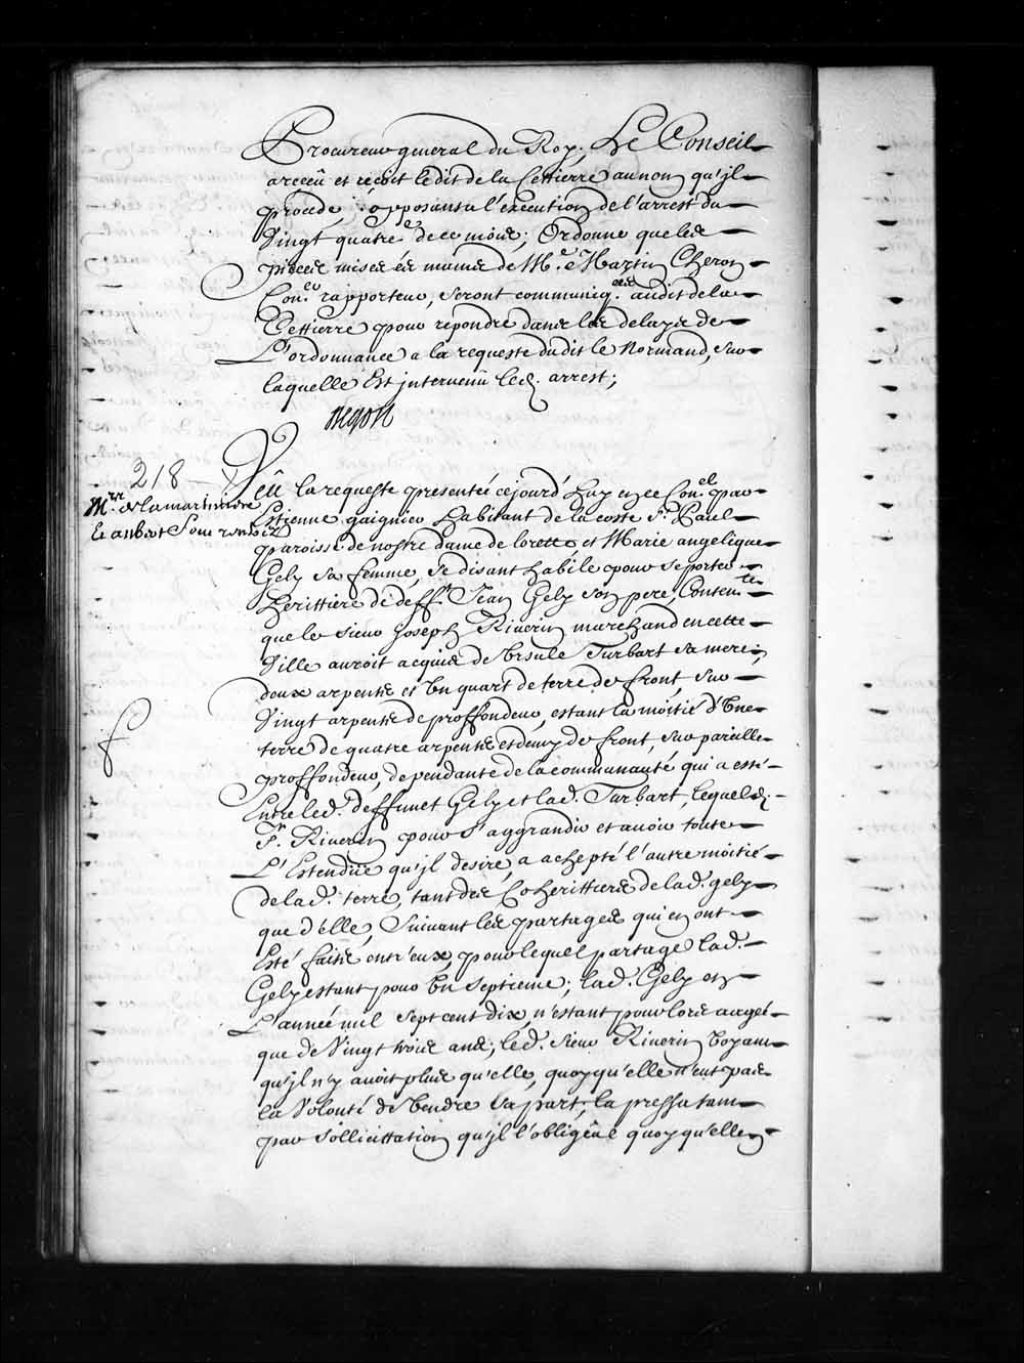 Procureur general du Roy; Le Conseil
a receu et reçoit ledit de la Cettierre au nom qu'jl
procede, opposant a l'execution de l'arrest du
Vingt quatre de ce mois; Ordonne que les
pieces mises és mains de Me. Martin Cheron
Coner. rapporteur, seront communiqées. audit de la
Cettierre pour repondre dans les delays de
L'ordonnance a la requeste dudit le Normand, sur
laquelle Est jntervenû led. arrest;
Begon
218
Mrs. de la martiniere
Veû la requeste presentée cejourd'huy en ce Conel. par
Estienne gaignier habitant de la coste St. Paul
paroisse de nostre dame de lorette, et Marie angelique
Gely sa femme, se disant habile pour se porter
Herittiere de defft. Jean Gely son pere, Contente.
que le sieur Joseph Riverin marchand en cette
Ville auroit acquis de Ursule Turbart sa mere;
deux arpents et Un quart de terre de front, sur
Vingt arpents de proffondeur, estant la moitié d'Une
terre de quatre arpents et demy de front, sur pareille
proffondeur, dependante de la communauté qui a esté
Entre led. deffunct Gely et lad. Turbart, lequel d.
Sr. Riverin pour s'aggrandir et avoir toute
L'Estendüe qu'jl desire, a achepté l'autre moitié
de lad. terre, tant des Coherittiers de lad. gely
que d'elle, Suivant les partages qui en ont
Esté faits entr'eux, pour lequel partage lad.
Gely estant pour Un Septieme; lad. Gely en
L'année mil sept cent dix, n'estant pour lors aagée
que de Vingt trois ans; led. sieur Riverin Voyant
qu'jl n'y avoit plus qu'elle, quoy qu'elle n'eut pas
la Volonté de Vendre sa part, la pressa tant
par sollicittation qu'jl l'obligeat quoy qu'elle